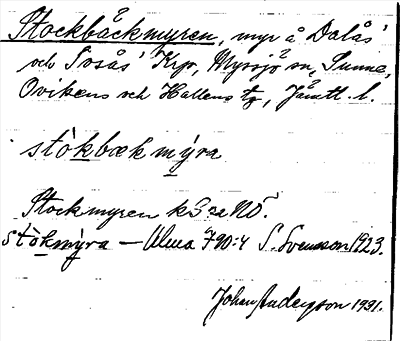 Stockbäckmyren, myr å Dalås'
och Svsås' Krpr, Myssjö sn, Sunne,
Ovikens och Hallens tg, Jämtl. l.
stòkbækmýra
Stockmyren k3sa NÖ.
stòkmýra – Alma 790:4 S. Svensson 1923.
Johan Anderzson 1931.